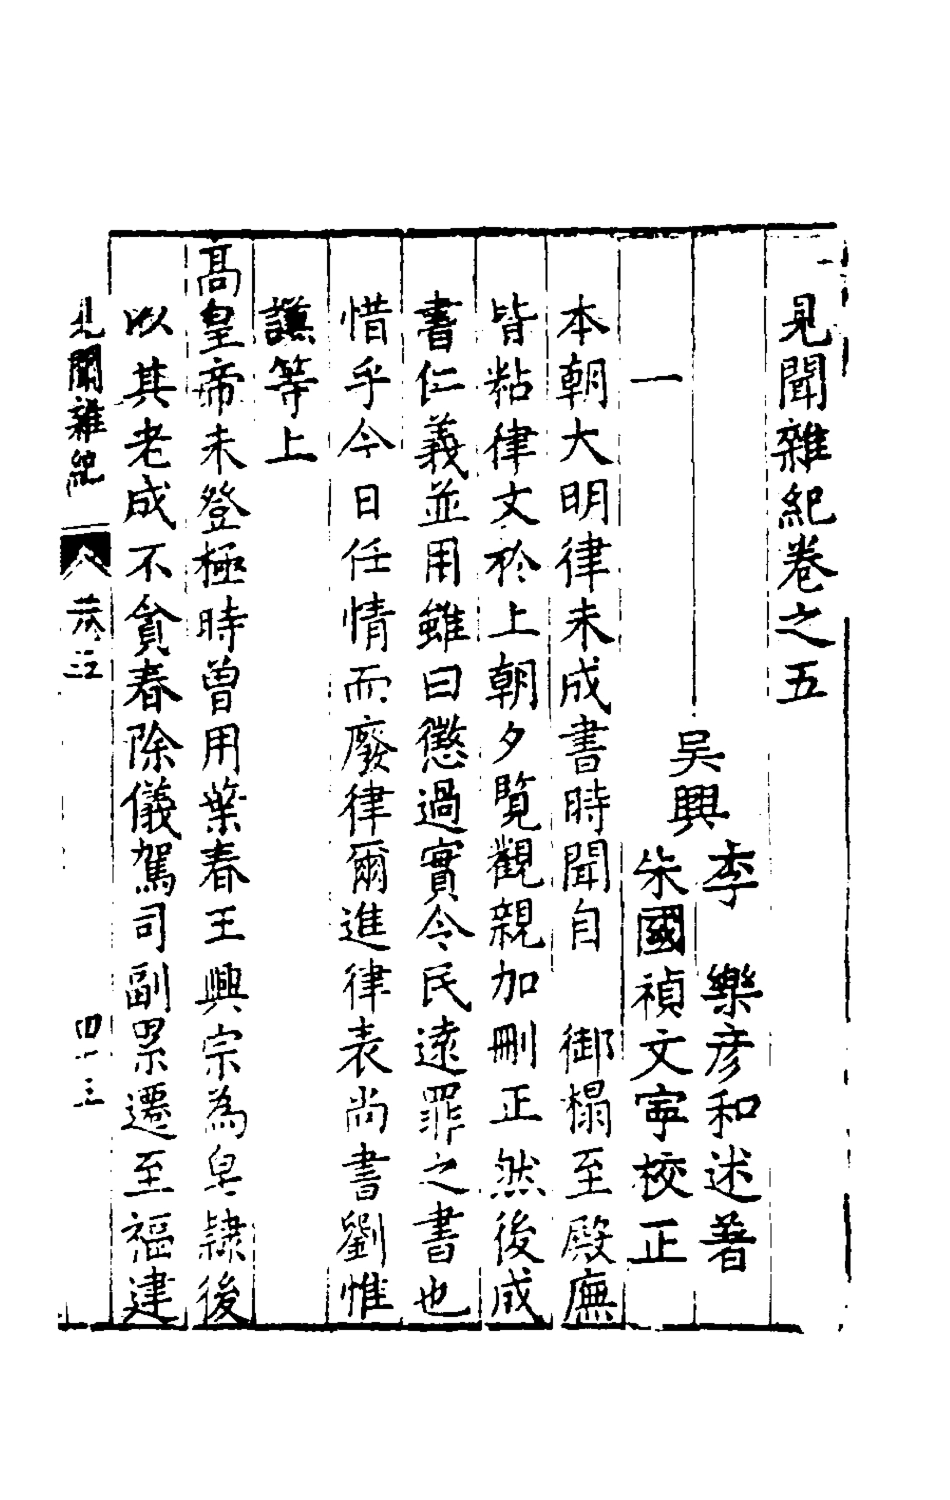 見聞雜紀卷之五
吳興
李　樂彥和述著
朱國禎文寧校正
一
本朝大明律未成書時聞自　御榻至殿廡
皆粘律文於上朝夕覽觀親加刪正然後成
書仁義並用雖曰懲過實令民遠罪之書也
惜乎今日任情而廢律爾進律表尚書劉惟
謙等上
高皇帝未登極時曾用葉春王興宗為皁隸後
以其老成不貪春除儀鸞司副累遷至福建
見聞雜紀
卷五
四十三